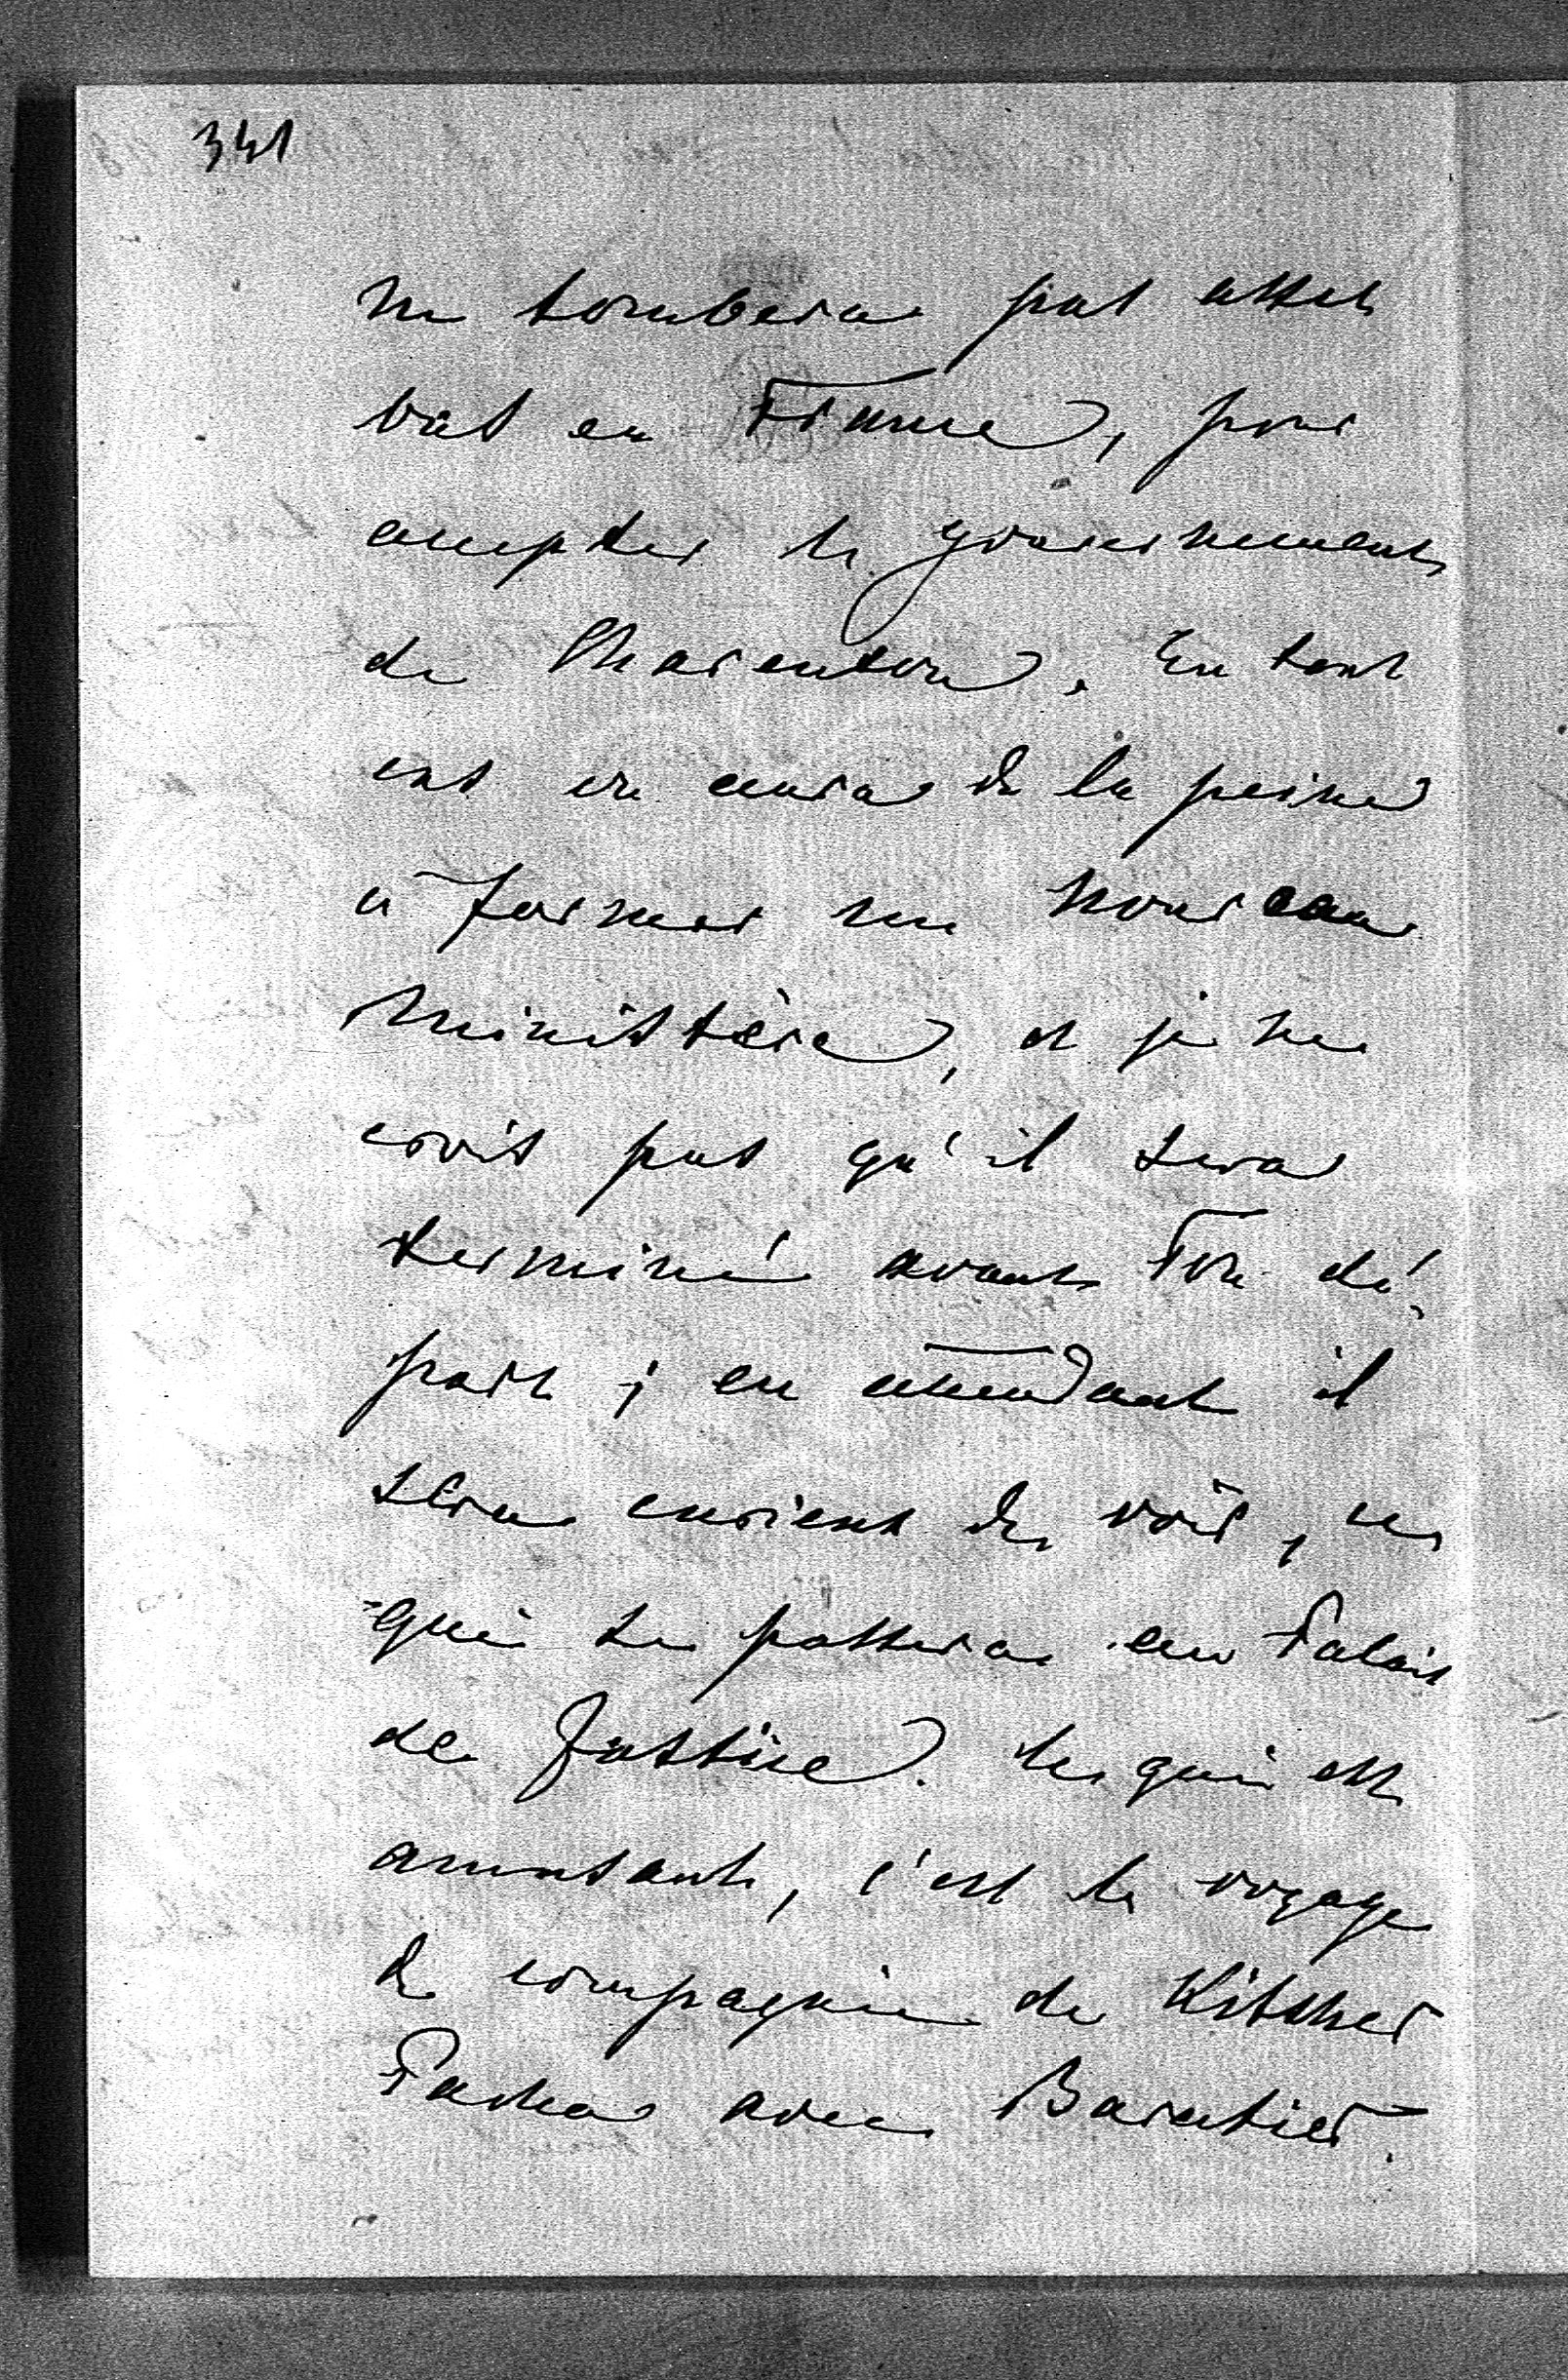 341
ne tombera pas assez
bas en France, pour
accepter le gouvernement
de Charenton. En tout
cas on aura de la peine
a former un nouveau
Ministère, et je ne
crois pas qu'il sera
terminé avant Ton dé-
part ; en attendant il
sera curieux de voir, ce
qui se passera au Palais
de Justice. Ce qui est
amusant, c'est le voyage
de compagnie de Kitchner
Pacha avec Baratier.